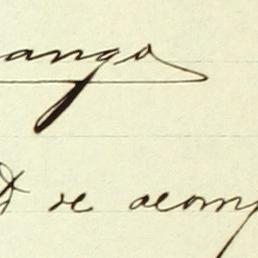 ango
D de acomp